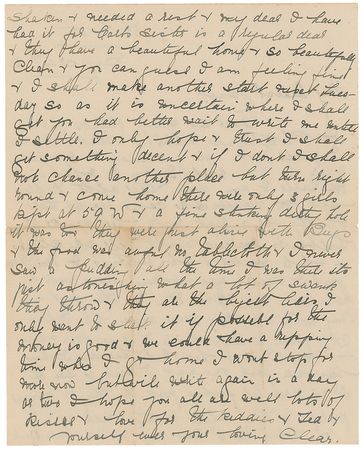 shaken & needed a rest & my dear I have
had it for Carts sister is a regular dear
& they have a beautiful home & so beautifully
clean & you can guess I am feeling fine
& I shall make another start next Tues-
day so as it is uncertain where I shall
get you had better wait to write me until
I settle. I only hope & trust I shall
get something decent & if I dont I shall
not chance another place but turn right
round & come home there were only 3 girls
kept at 59 W & a fine stinking dirty hole
it was too they were just alive with Bugs
& the food was awful no tablecloth & I never
saw a pudding all the time I was there its
just astonishing what a lot of swank
they throw & they are the biggest liars I
only want to stick it if possible for the
money is good & we could have a ripping
time when I go home I wont stop for
more now but will write again in a day
or two I hope you all are well lots of
kisses & love for the kiddies & Ted &
yourself from your loving Clear.